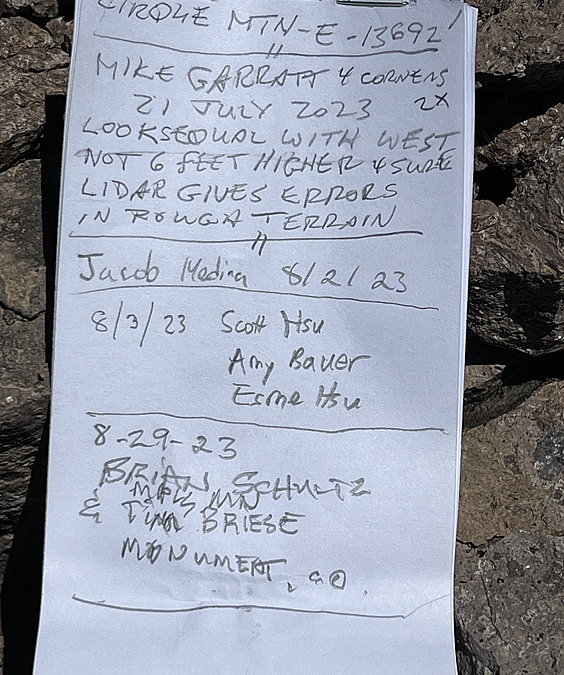 CIRQUE MTN-E-13692'
MIKE GARRATT 4 CORNERS
21 JULY 2023 2X
LOOKSEQUAL WITH WEST
NOT 6 FEET HIGHER 4 SURE
LIDAR GIVES ERRORS
IN ROUGH TERRAIN
Jacob Medina 8/2/23
8/3/23 Scott Hsu
Amy Bauer
Esme Hsu
8-29-23
BRIAN SCHULTZ
& TINA BRIESE
MONUMENT, CO.